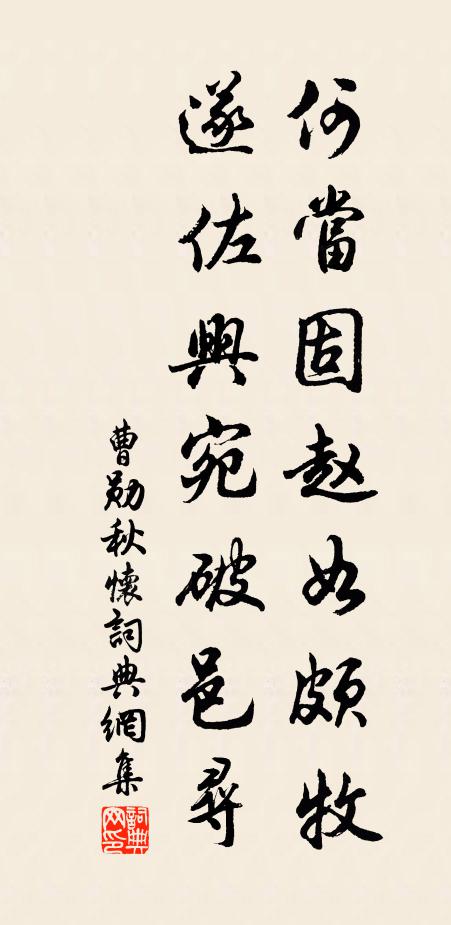 何當固赵如頗牧
遂佐興宛破邑尋
曹勋秋懷詞典網集
詞典网印